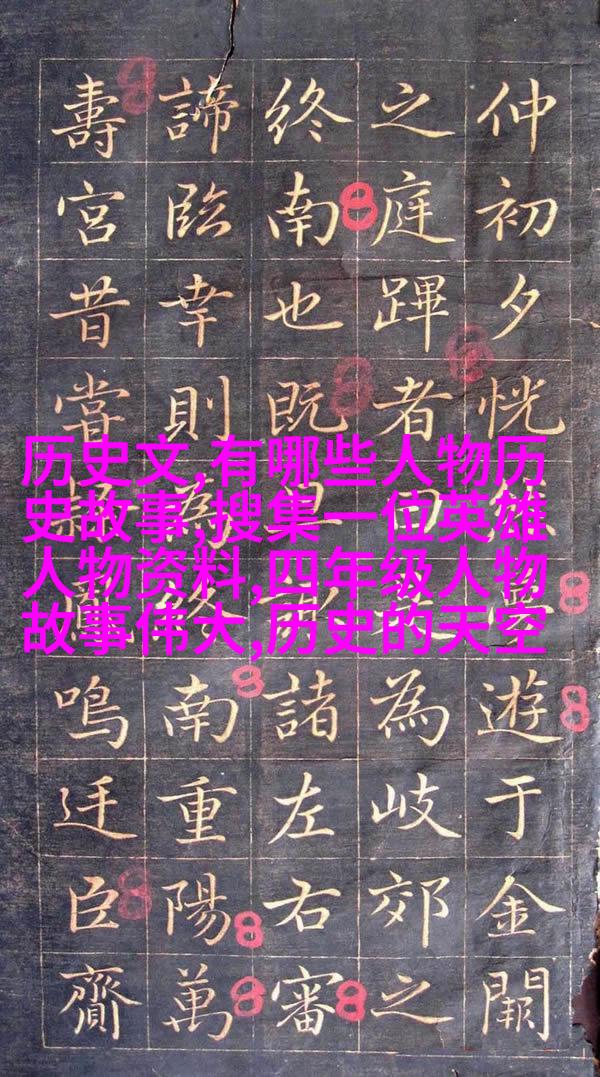 仲初夕恍遊于金闕
之庭蹕者為岐郊之
終南也既諸左右審
諦臨幸則為終南重陽萬
壽宮昔嘗鳴迋臣齎
历史文,有哪些人物历
史故事,搜集一位英雄
人物资料,四年级人物
故事伟大,历史的天空